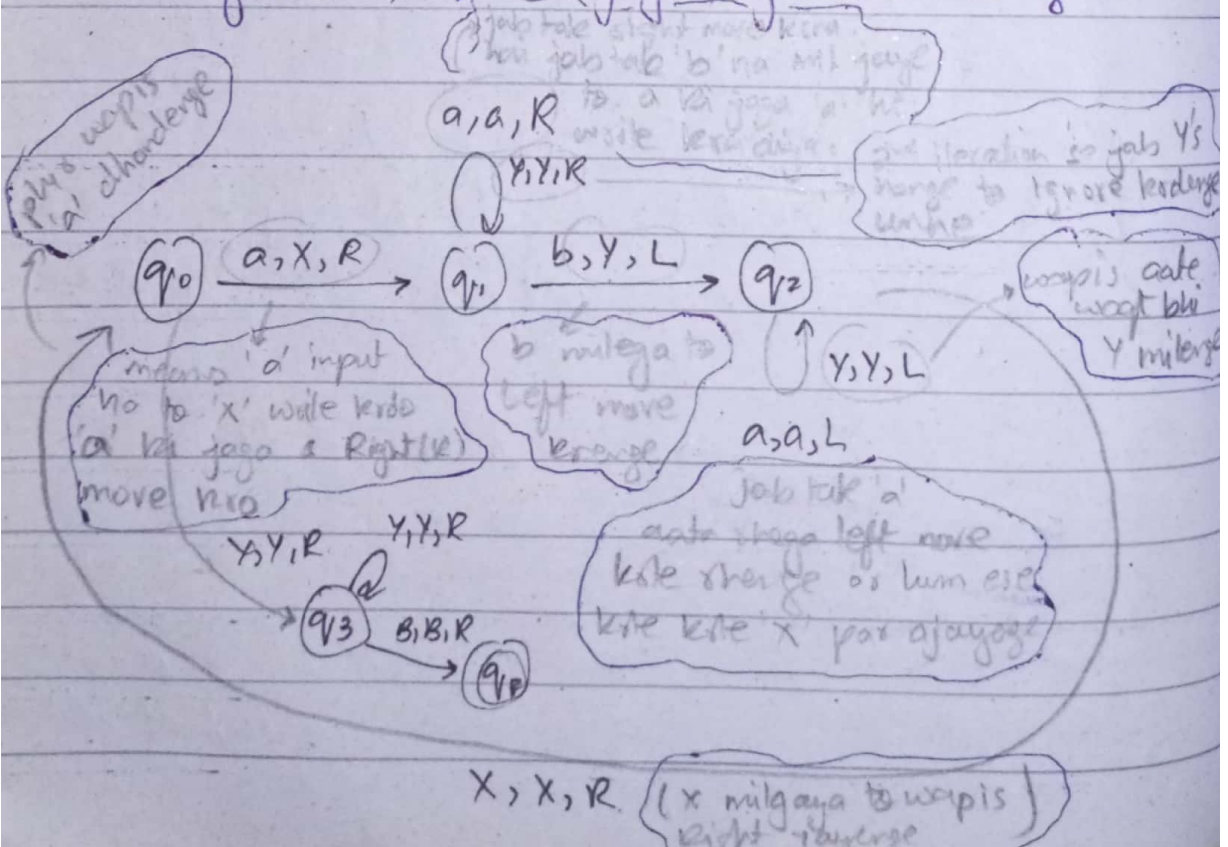 jab tak right move kera
hai jab tak 'b' na mil jaye
to a ki jaga 'a' hi
write
phir wapis
'a' dhonderge
a, a, R
Y,Y,R
iteration jab Y's
honge to ignore krderge
q0
a, X, R
q1
b, Y, L
q2
wapis aate
waqt bhi
Y milenge
means 'a' input
ho to 'x' write krdo
'a' ki jaga & Right(R)
move kro
b milega to
Left move
krenge
Y,Y, L
a,a, L
jab tak 'a'
aata rhega left move
krte rhenge or hum ese
krte krte 'x' par ajayege
Y,Y,R
Y,Y,R
q3
B,B,R
qF
X, X, R
(x milgaya to wapis)
Right